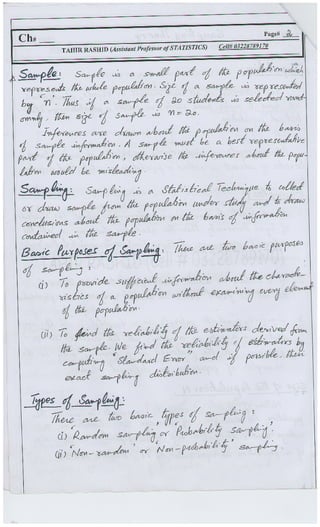 Ch#
Page# 2
TAHIR RASHID (Assistant Professor of STATISTICS) Cell# 03228789170
Sample: Sample is a small part of the population which
represents the whole population. Size of a sample is represented
by 'n'. Thus if a sample of 20 students is selected rand-
omly, then size of sample is n = 20.
Inferences are drawn about the population on the basis
of sample information. A sample must be a best representative
part of the population, otherwise the inferences about the popu-
lation would be misleading.
Sampling: Sampling is a Statistical Technique to collect
or draw sample from the population under study and to draw
conclusions about the population on the basis of information
contained in the sample.
Basic Purposes of Sampling: There are two basic purposes
of sampling:
(i) To provide sufficient information about the characte-
ristics of a population without examining every element
of the population.
(ii) To find the reliability of the estimators derived from
the sample. We find the reliability of estimators by
computing "Standard Error" and if possible, then
exact sampling distribution.
Types of Sampling:
There are two basic types of sampling:
(i) Random sampling or "Probability sampling".
(ii) "Non-random" or "Non-probability" sampling.